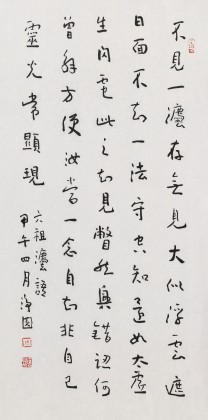 不見一灋存無見大似浮雲遮
日面不知一法守空知還如太虛
生閃電此之知見瞥然興錯認何
曾解方便汝當一念自知非自己
靈光常顯現
六祖灋語
甲午四月淨